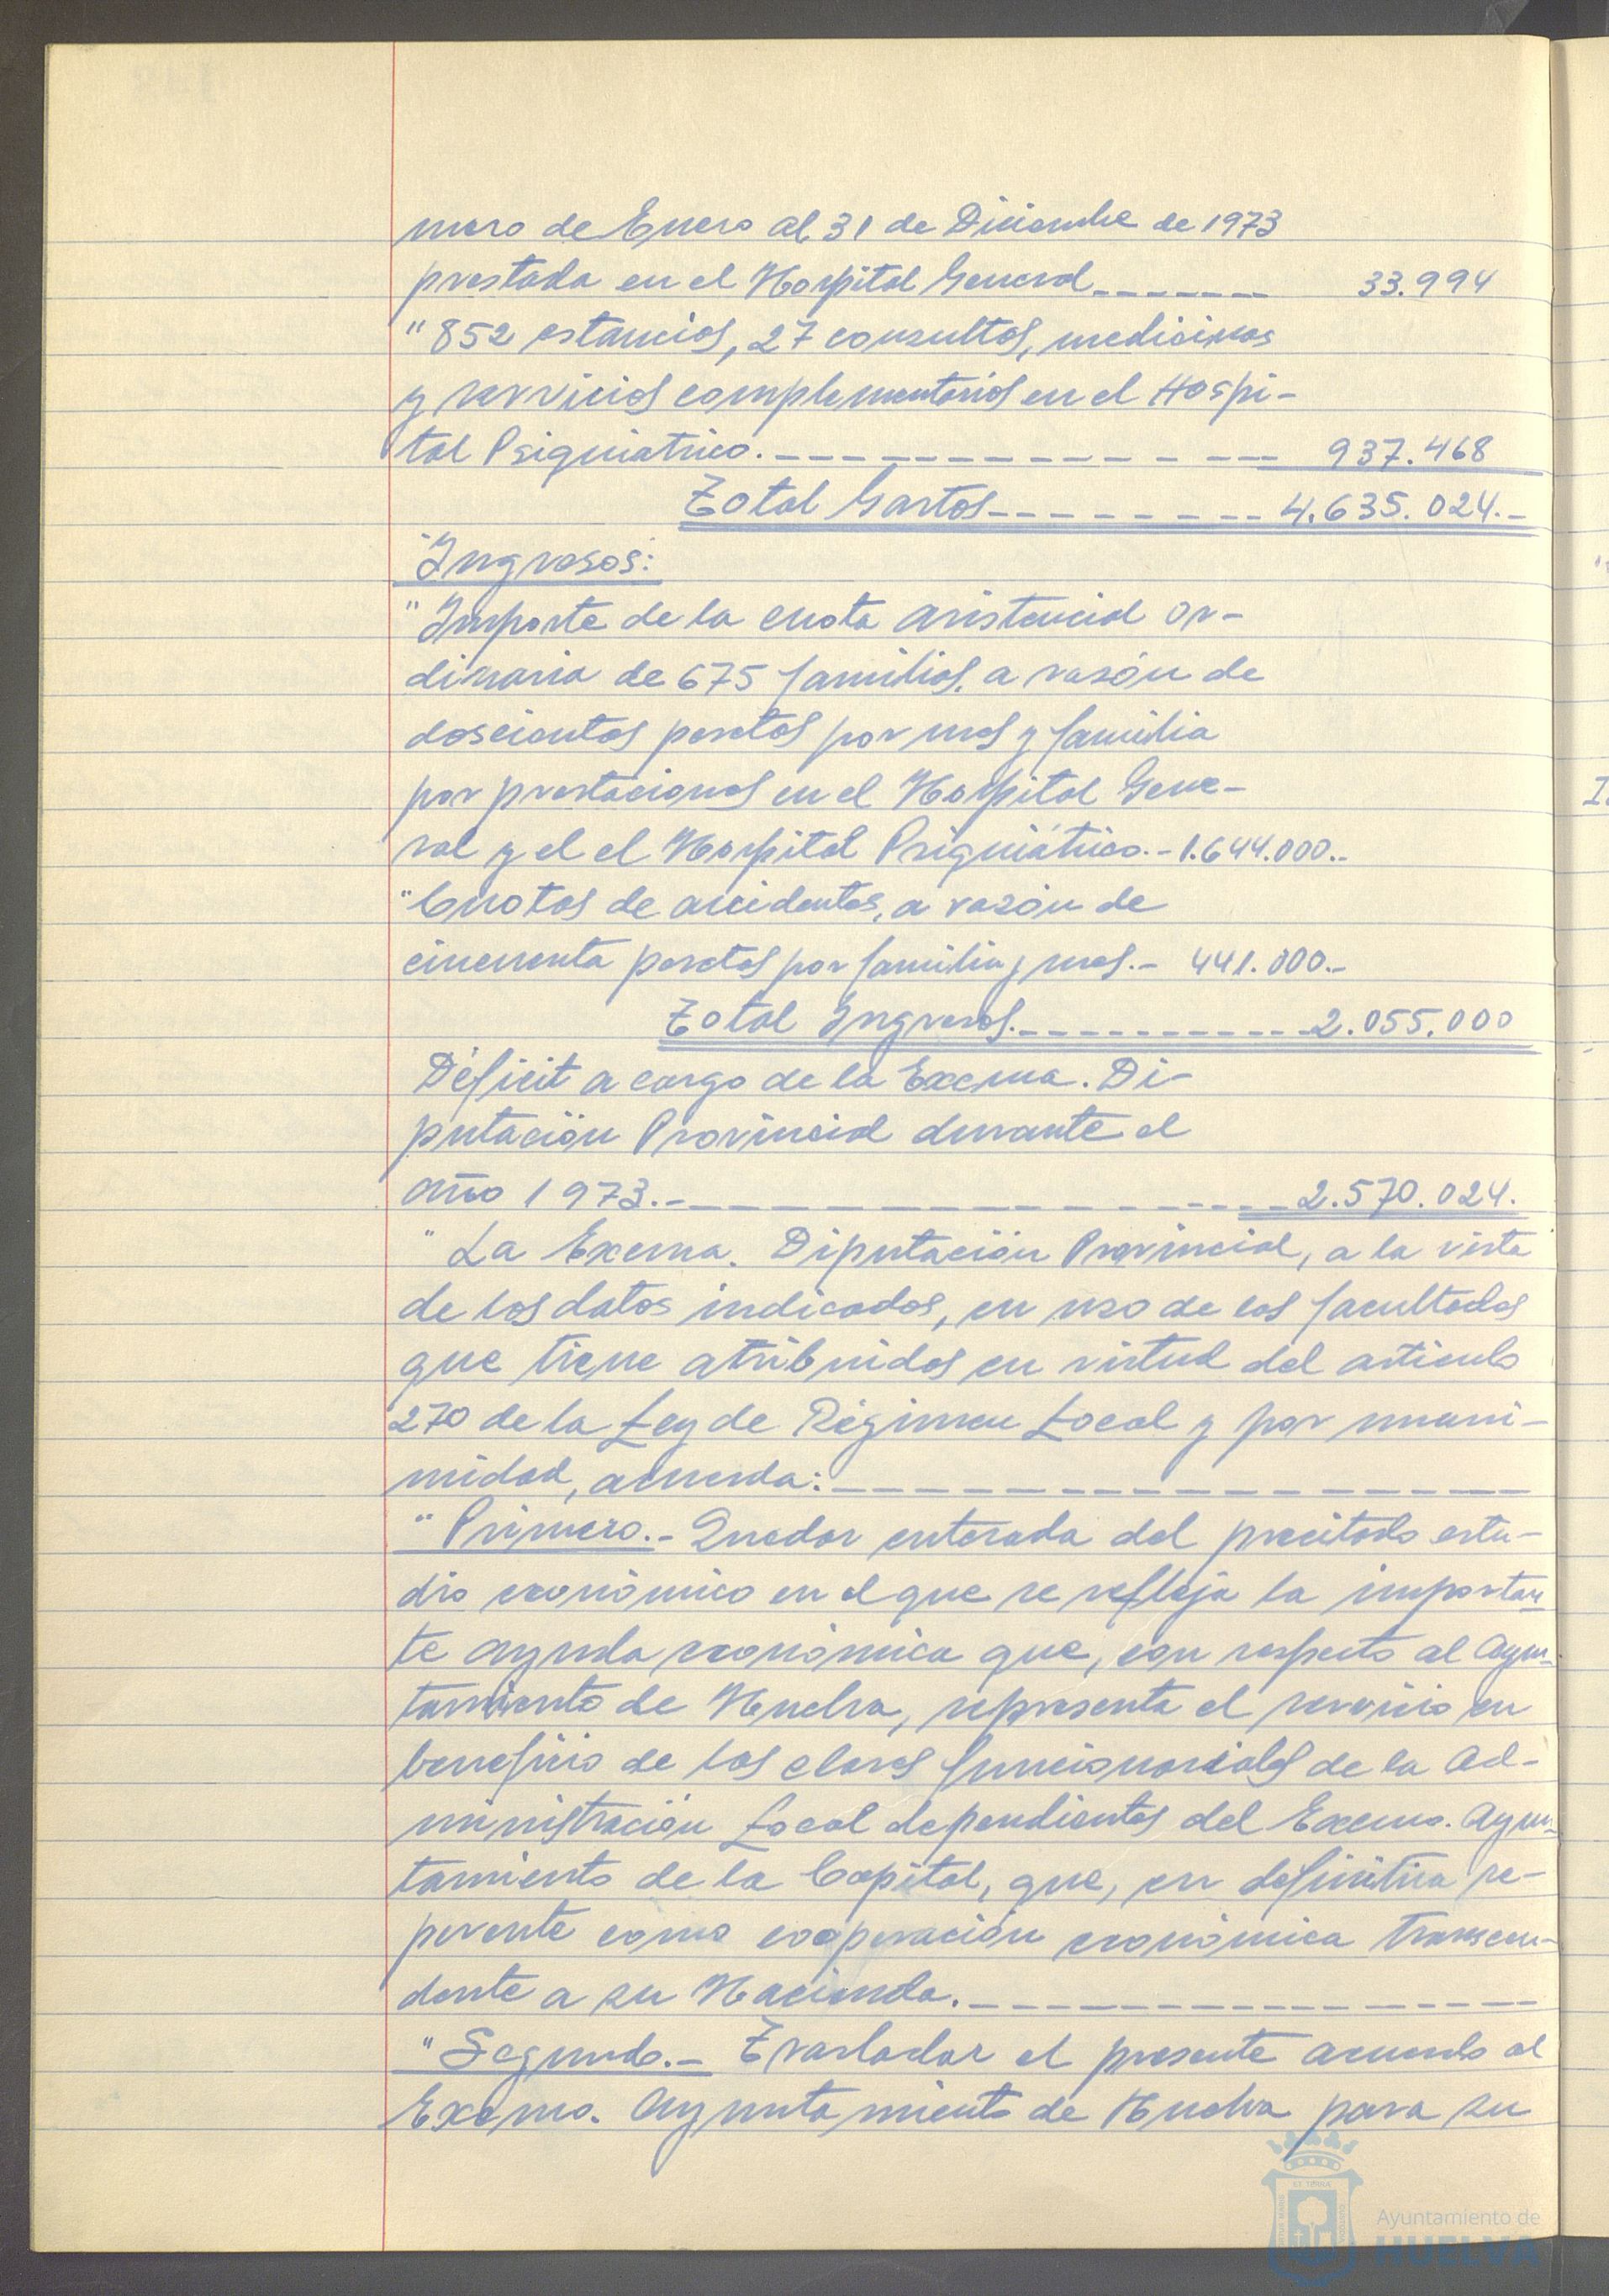 mero de Enero al 31 de Diciembre de 1973
prestada en el Hospital General ------- 33.994
"852 estancias, 27 consultas, medicinas
y servicios complementarios en el Hospi-
tal Psiquiatrico. ------------- 937.468
Total Gastos--------- 4.635.024.-
"Ingresos:
"Importe de la cuota asistencial or-
dinaria de 675 familias, a razón de
doscientas pesetas por mes y familia
por prestaciones en el Hospital Gene-
ral y el el Hospital Psiquiátrico.- 1.644.000.-
"Cuotas de accidentes, a razón de
cincuenta pesetas por familia y mes.- 441.000.-
Total Ingresos.----------- 2.055.000
Déficit a cargo de la Excma. Di-
putación Provincial durante el
año 1973.--------------- 2.570.024.
"La Excma. Diputación Provincial, a la vista
de los datos indicados, en uso de las facultades
que tiene atribuidas en virtud del articulo
270 de la Ley de Régimen Local y por unani-
midad, acuerda:-----------------
"Primero.- Quedar enterada del precitado estu-
dio económico en el que se refleja la importan-
te ayuda económica que, con respecto al Ayun-
tamiento de Huelva, representa el servicio en
beneficio de las clases funcionariales de la Ad-
ministración Local dependientes del Excmo. Ayun-
tamiento de la Capital, que, en definitiva re-
percute como cooperación económica transcen-
dente a su Hacienda.----------------
"Segundo.- Trasladar el presente acuerdo al
Excmo. Ayuntamiento de Huelva para su
Ayuntamiento de
HUELVA